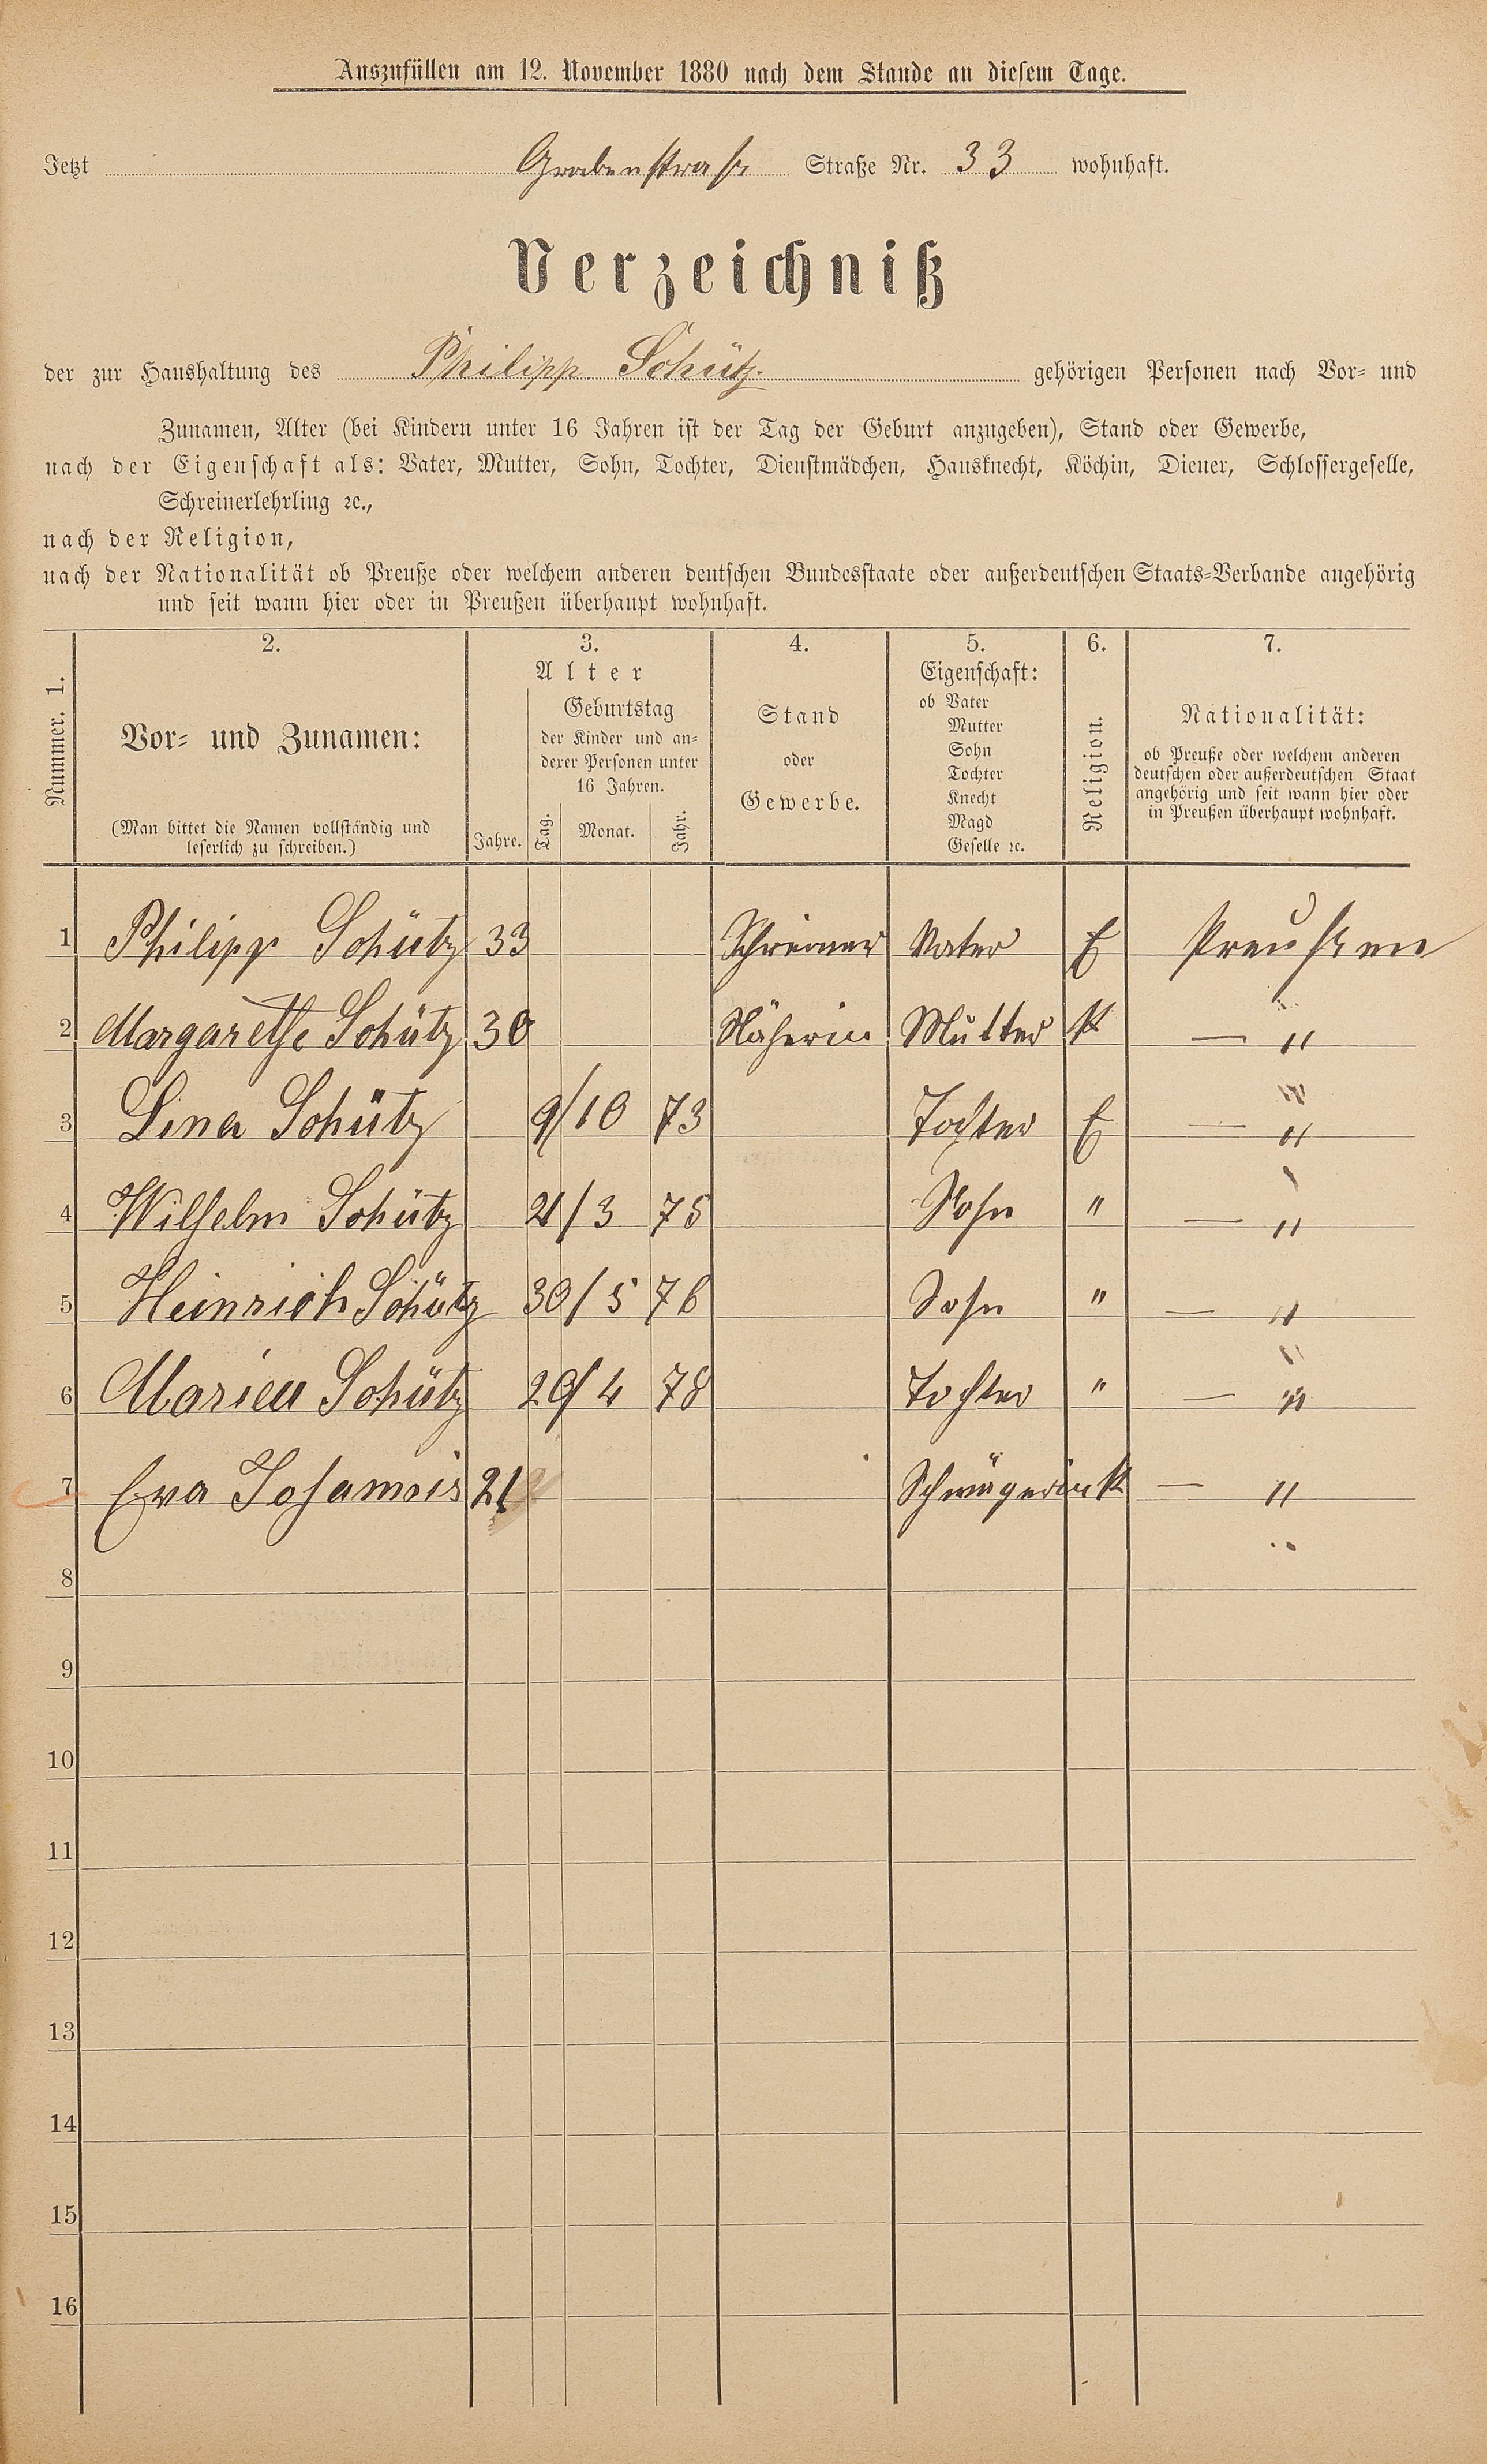 Auszufüllen am 12. November 1880 nach dem Stande an diesem Tage.
Jetzt Grabenstraße Straße Nr. 33 wohnhaft.
Verzeichniß
der zur Haushaltung des Philipp Schütz. gehörigen Personen nach Vor- und
Zunamen, Alter (bei Kindern unter 16 Jahren ist der Tag der Geburt anzugeben), Stand oder Gewerbe,
nach der Eigenschaft als: Vater, Mutter, Sohn, Tochter, Dienstmädchen, Hausknecht, Köchin, Diener, Schlossergeselle,
Schreinerlehrling ꝛc.,
nach der Religion,
nach der Nationalität ob Preuße oder welchem anderen deutschen Bundesstaate oder außerdeutschen Staats-Verbande angehörig
und seit wann hier oder in Preußen überhaupt wohnhaft.
Nummer. 1.
2.
Vor- und Zunamen:
(Man bittet die Namen vollständig und
leserlich zu schreiben.)
3.
Alter
Jahre.
Geburtstag
der Kinder und an-
derer Personen unter
16 Jahren.
Tag. Monat. Jahr.
4.
Stand
oder
Gewerbe.
5.
Eigenschaft:
ob Vater
Mutter
Sohn
Tochter
Knecht
Magd
Geselle ꝛc.
6.
Religion.
7.
Nationalität:
ob Preuße oder welchem anderen
deutschen oder außerdeutschen Staat
angehörig und seit wann hier oder
in Preußen überhaupt wohnhaft.
1 Philipp Schütz 33 Schreiner Vater E Preußen
2 Margarethe Schütz 30 Näherin Mutter K — "
3 Lina Schütz 9/10 73 Tochter E — "
4 Wilhelm Schütz /3 75 Sohn " — "
5 Heinrich Schütz 30/5 76 Sohn " — "
6 Schütz 20/4 78 Tochter " — "
7 Eva 21 Schwägerin K — "
8
9
10
11
12
13
14
15
16